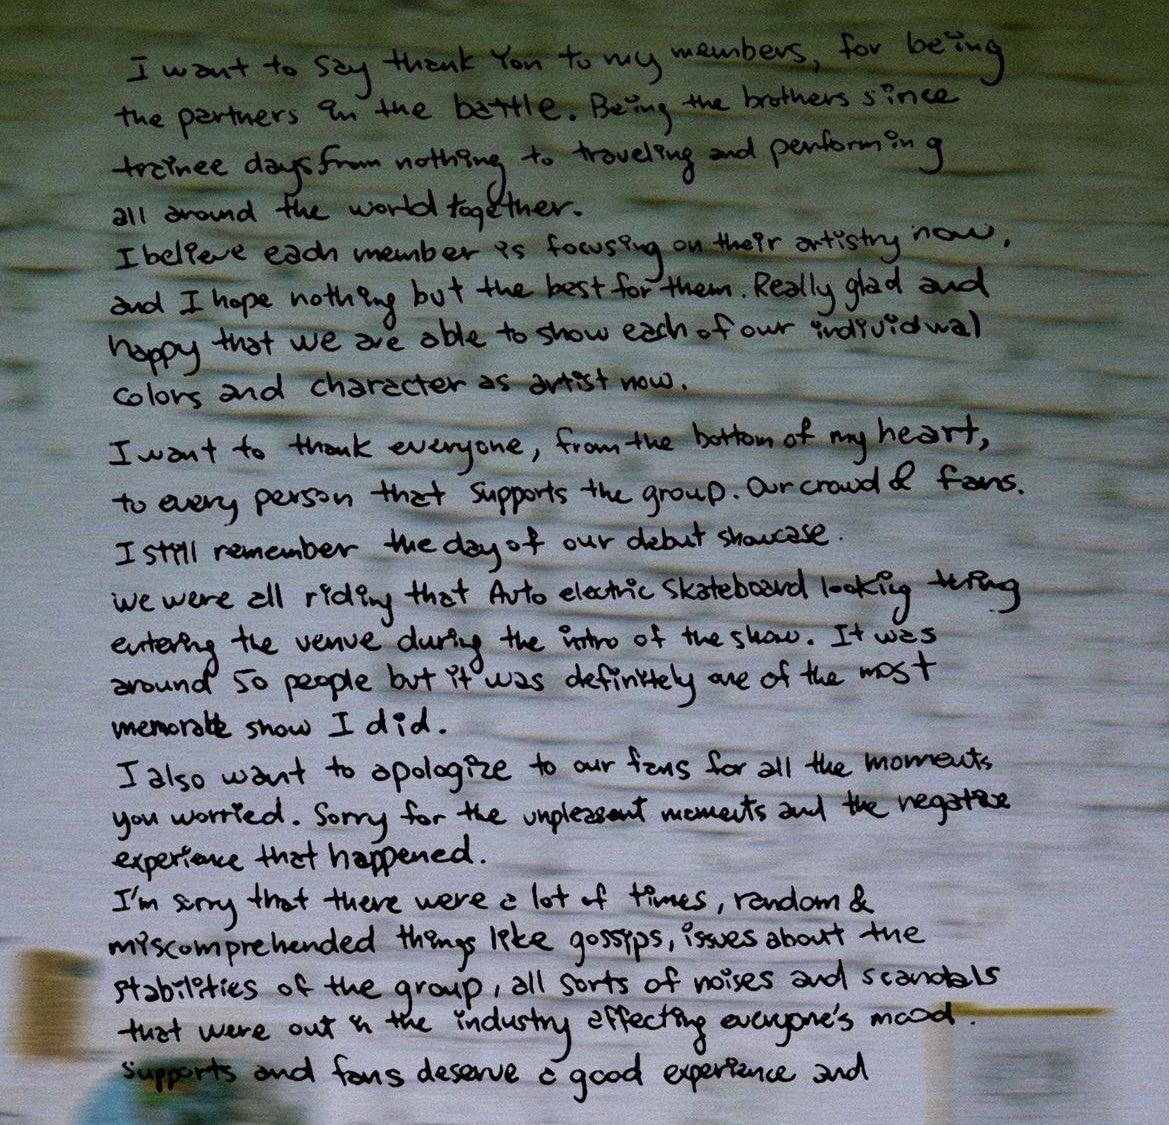 I want to say thank You to my members, for being
the partners in the battle. Being the brothers since
trainee days from nothing to traveling and performing
all around the world together.
I believe each member is focusing on their artistry now,
and I hope nothing but the best for them. Really glad and
happy that we are able to show each of our individual
colors and character as artist now.
I want to thank everyone, from the bottom of my heart,
to every person that supports the group. Our crowd & fans.
I still remember the day of our debut showcase.
We were all riding that Auto electric skateboard looking thing
entering the venue during the intro of the show. It was
around 50 people but it was definitely one of the most
memorable show I did.
I also want to apologize to our fans for all the moments
you worried. Sorry for the unpleasant moments and the negative
experience that happened.
I'm sorry that there were a lot of times, random &
miscomprehended things like gossips, issues about the
stabilities of the group, all sorts of noises and scandals
that were out in the industry affecting everyone's mood.
Supports and fans deserve a good experience and